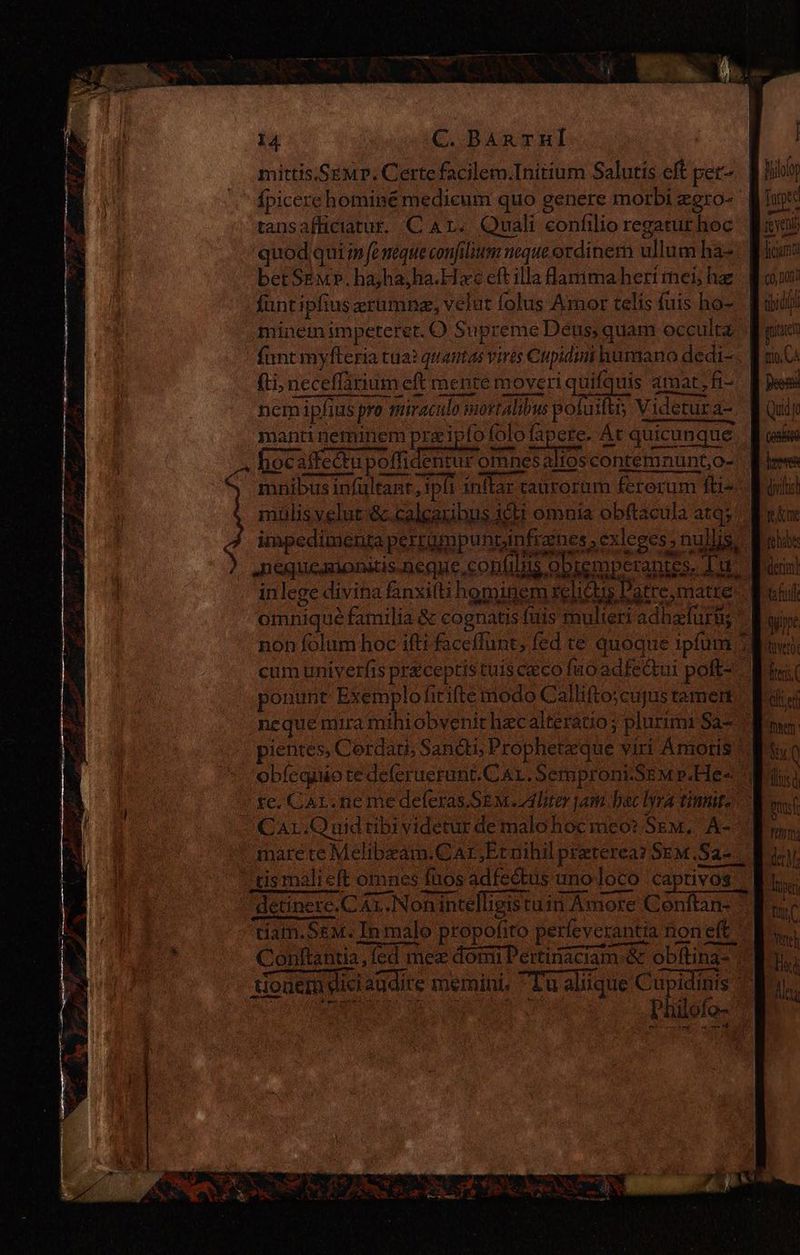 14 C. BARTHI
mittis.SEMP. Certe facilem.Initium Salutis eſt per-
ſpicere hominē medicum quo genere morbi ægro-
tans afficiatur. CAL. Quali conſilio regatur hoc
quod qui in ſe neque conſilium neque ordinem ullum ha-
bet SEMP. ha,ha,ha.Hæc eſt illa flamma heri mei, hæ
ſunt ipſius ærumnæ, velut ſolus Amor telis ſuis ho-
minem impeteret. O Supreme Deus, quam occulta
ſunt myſteria tua? quantas vires Cupidini humano dedi-
ſti, neceſſarium eſt mente moveri quiſquis amat, fi-
nem ipſius pro miraculo mortalibus poſuiſti; Videtur a-
manti neminem præ ipſo ſolo ſapere. At quicunque
hoc affectu poſſidentur omnes alios contemnunt, o-
mnibus inſultant, ipſi inſtar taurorum ferorum ſti-
mulis velut & calcaribus icti omnia obſtacula atq;
impedimenta perrumpunt, infrænes, exleges, nullis,
neque monitis neque conſiliis obtemperantes. Tu
in lege divina ſanxiſti hominem relictis Patre, matre
omnique familia & cognatis ſuis mulieri adhæſurū;
non ſolum hoc iſti faceſſunt, ſed te quoque ipſum
cum univerſis præceptis tuis cæco ſuo adfectui poſt-
ponunt Exemplo ſit iſte modo Calliſto; cujus tamen
neque mira mihi obvenit hæc alteratio; plurimi Sa-
pientes, Cordati, Sancti, Prophetæque viri Amoris
obſequio te deſeruerunt. CAL. Semproni. SEMP. He-
re. CAL. ne me deſeras. SEM. Aliter jam hæc lyra tinnit.
CAL. Quid tibi videtur de malo hoc meo? SEM. A-
mare te Melibæam. CAL. Et nihil præterea? SEM. Sa-
tis mali eſt omnes ſuos adfectus uno loco captivos
detinere. CAL. Non intelligis tu in Amore Conſtan-
tiam. SEM. In malo propoſito perſeverantia non eſt
Conſtantia, ſed meæ domi Pertinaciam & obſtina-
tionem dici audire memini. Tu aliique Cupidinis
Philoſo-